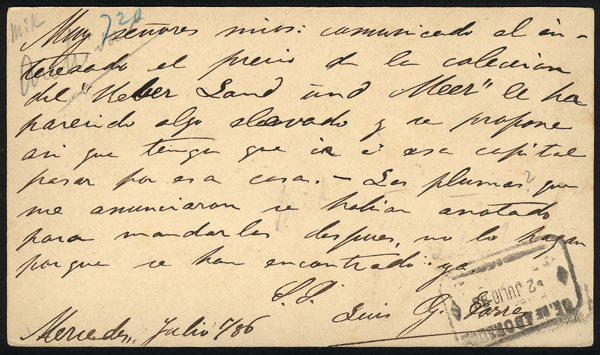 Mik
720
Muy señores mios: comunicado al in-
teresado el precio de la coleccion
del "Ueber Land und Meer" le ha
parecido algo elevado y se propone
asi que tenga que ir á esa capital
pasar por esa casa. - Las plumas que
me anunciaron se habian anotado
para mandarlas despues, no lo hagan
porque se han encontrado ya.
S.S.
Luis G.
Mercedes, Julio 1/86
2 JULIO 86